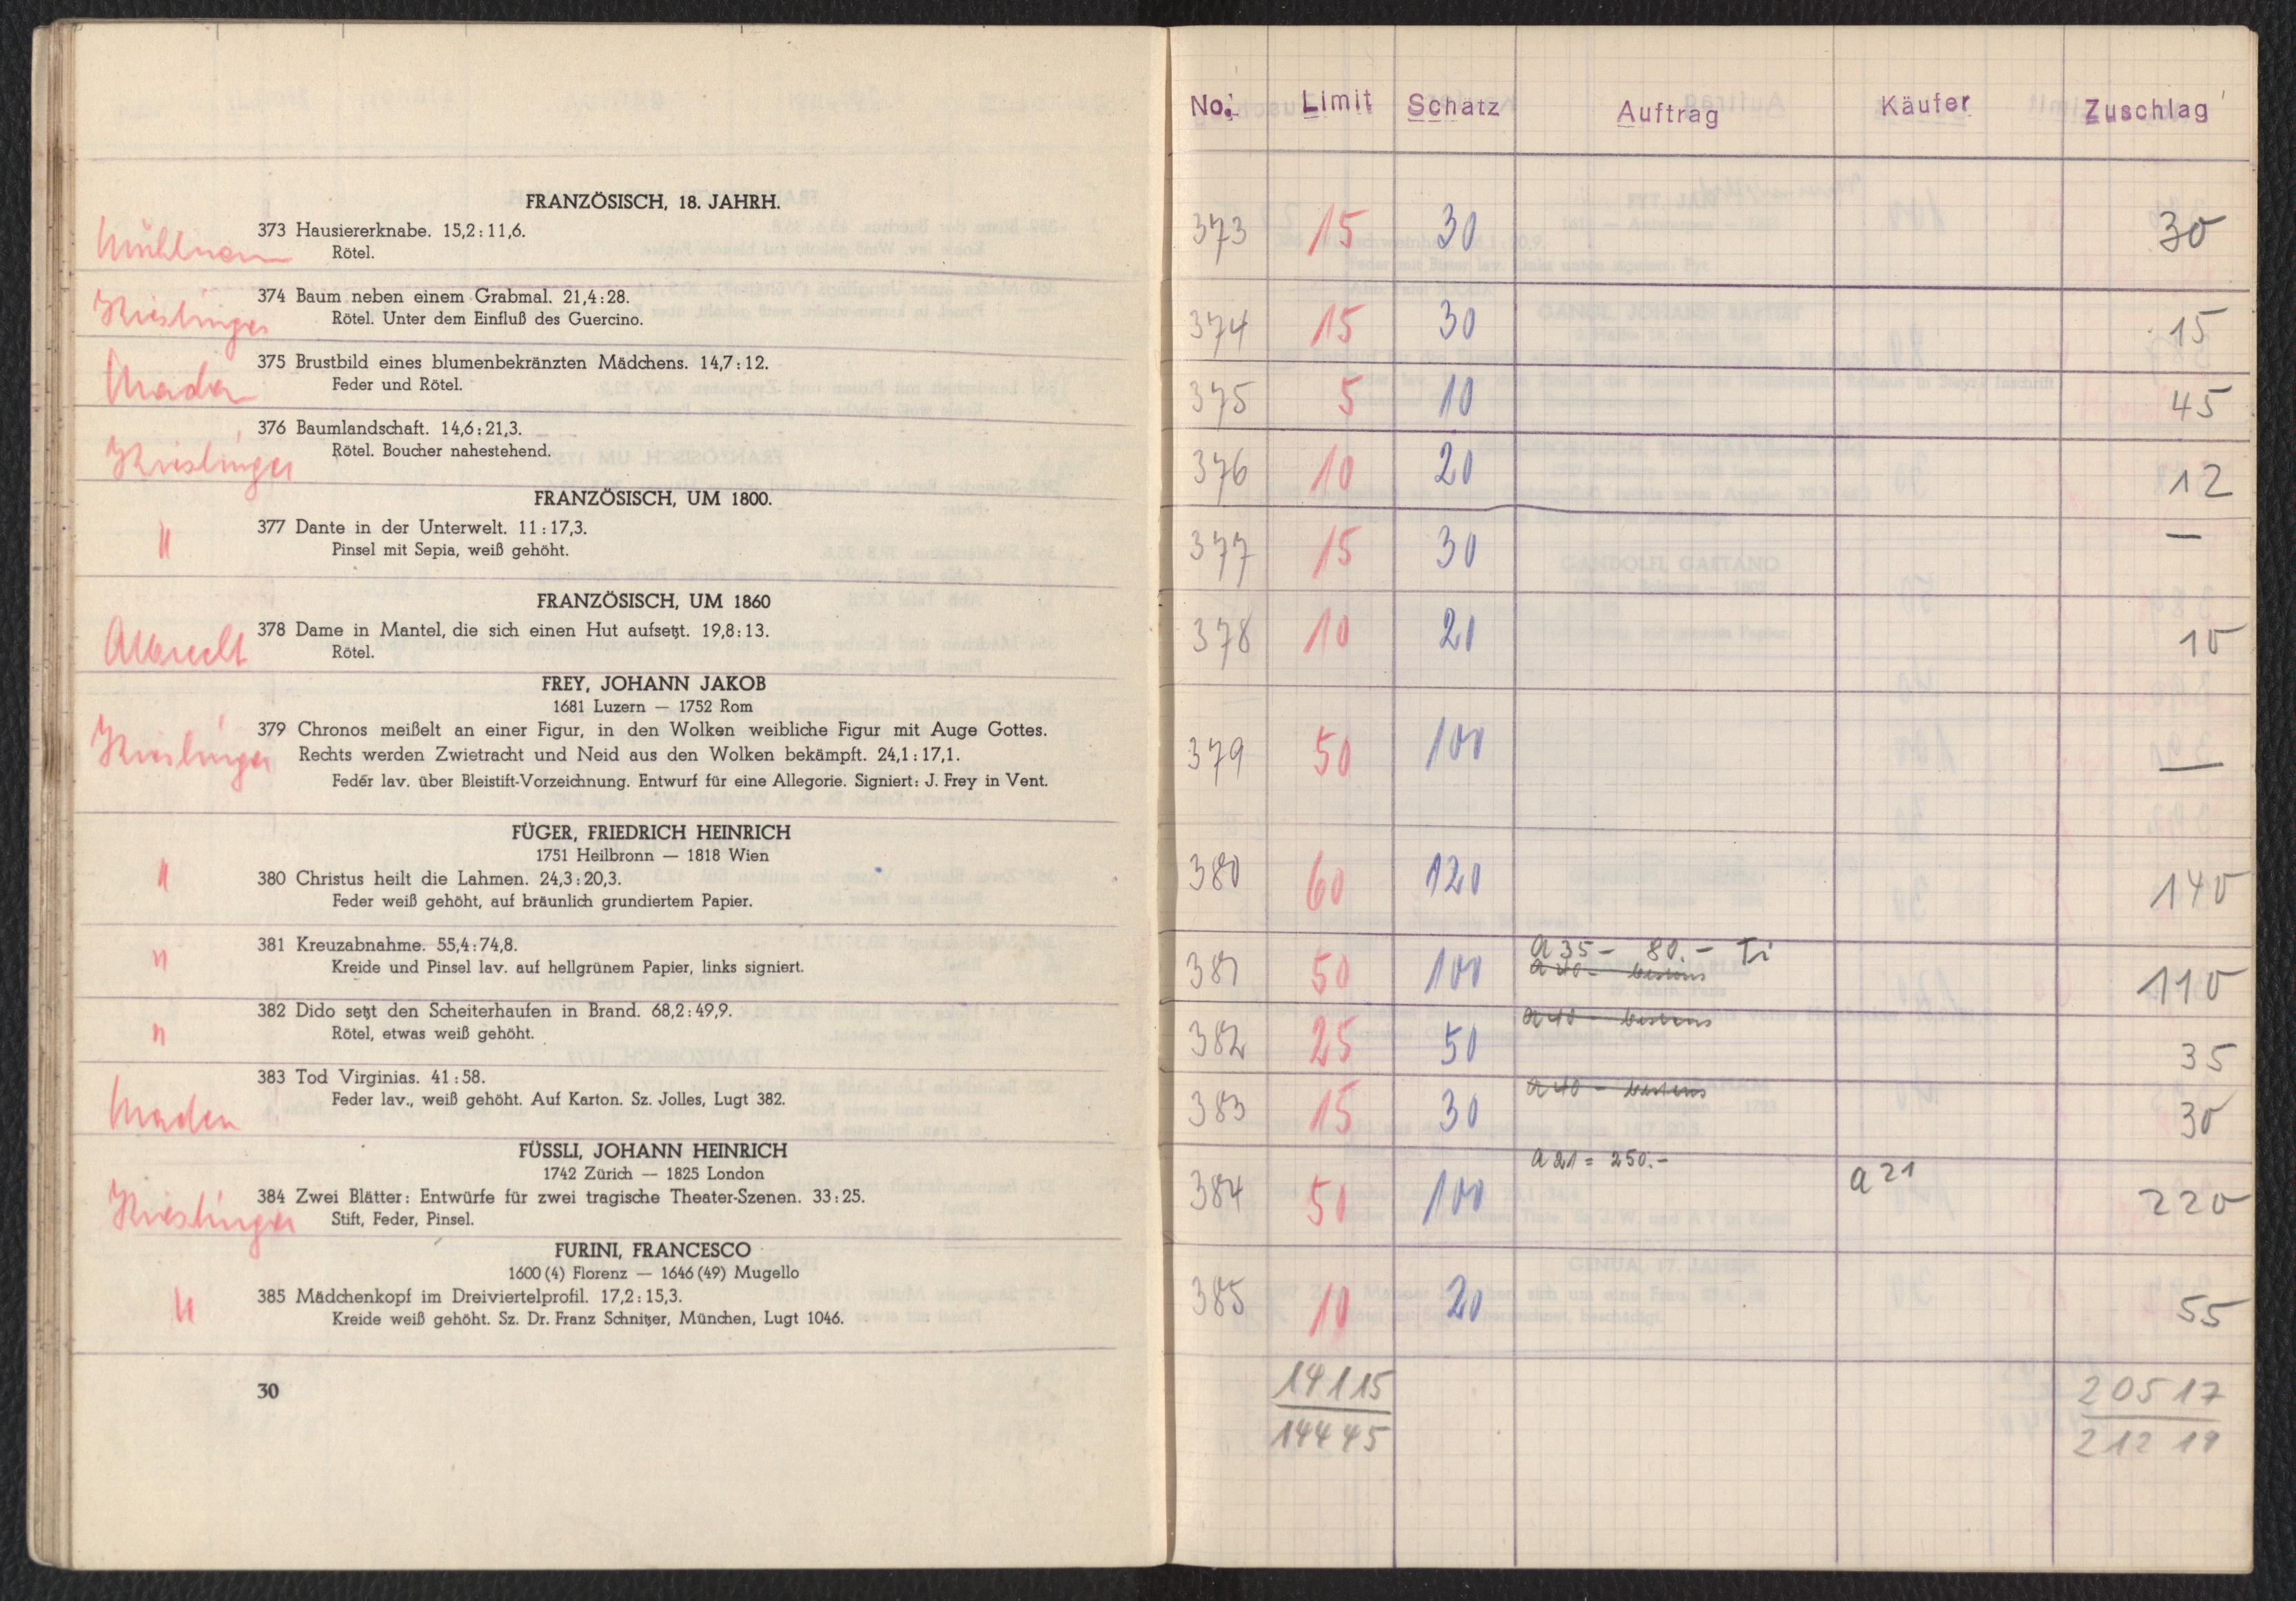 FRANZÖSISCH, 18. JAHRH.
373 Hausiererknabe. 15,2:11,6.
Rötel.
Kieslinger
374 Baum neben einem Grabmal. 21,4:28.
Rötel. Unter dem Einfluß des Guercino.
375 Brustbild eines blumenbekränzten Mädchens. 14,7:12.
Feder und Rötel.
376 Baumlandschaft. 14,6:21,3.
Kieslinger
Rötel. Boucher nahestehend.
FRANZÖSISCH, UM 1800.
377 Dante in der Unterwelt. 11:17,3.
"
Pinsel mit Sepia, weiß gehöht.
FRANZÖSISCH, UM 1860
378 Dame in Mantel, die sich einen Hut aufsetzt. 19,8:13.
Albrecht
Rötel.
FREY, JOHANN JAKOB
1681 Luzern — 1752 Rom
379 Chronos meißelt an einer Figur, in den Wolken weibliche Figur mit Auge Gottes.
Kieslinger
Rechts werden Zwietracht und Neid aus den Wolken bekämpft. 24,1:17,1.
Feder lav. über Bleistift-Vorzeichnung. Entwurf für eine Allegorie. Signiert: J. Frey in Vent.
FÜGER, FRIEDRICH HEINRICH
1751 Heilbronn — 1818 Wien
"
380 Christus heilt die Lahmen. 24,3:20,3.
Feder weiß gehöht, auf bräunlich grundiertem Papier.
381 Kreuzabnahme. 55,4:74,8.
"
Kreide und Pinsel lav. auf hellgrünem Papier, links signiert.
382 Dido setzt den Scheiterhaufen in Brand. 68,2:49,9.
"
Rötel, etwas weiß gehöht.
383 Tod Virginias. 41:58.
Feder lav., weiß gehöht. Auf Karton. Sz. Jolles, Lugt 382.
FÜSSLI, JOHANN HEINRICH
1742 Zürich — 1825 London
384 Zwei Blätter: Entwürfe für zwei tragische Theater-Szenen. 33:25.
Kieslinger
Stift, Feder, Pinsel.
FURINI, FRANCESCO
1600(4) Florenz — 1646(49) Mugello
385 Mädchenkopf im Dreiviertelprofil. 17,2:15,3.
"
Kreide weiß gehöht. Sz. Dr. Franz Schnitzer, München, Lugt 1046.
30
No. Limit Schätz Auftrag Käufer Zuschlag
373 15 30 30
374 15 30 15
375 5 10 45
376 10 20 12
377 15 30 —
378 10 20 10
379 50 100 —
380 60 120 140
a 35 - 80.- Ti
381 50 100 a 40 - bestens 110
382 25 50 a 40 - bestens 35
383 15 30 a 40 - bestens 30
a 21 = 250.-
384 50 100 a 21 220
385 10 20 55
14115 20517
14445 21219